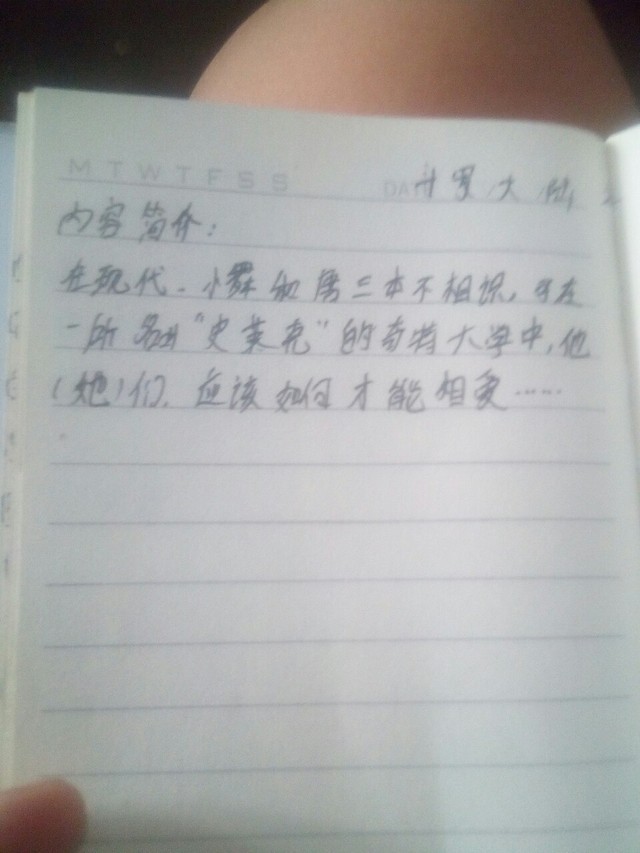 M T W T F S S
DA 斗罗大陆
内容简介:
在现代.小舞和唐三本不相识,
一所名叫“史莱克”的奇特大学中,他
(她)们.应该如何才能相爱……